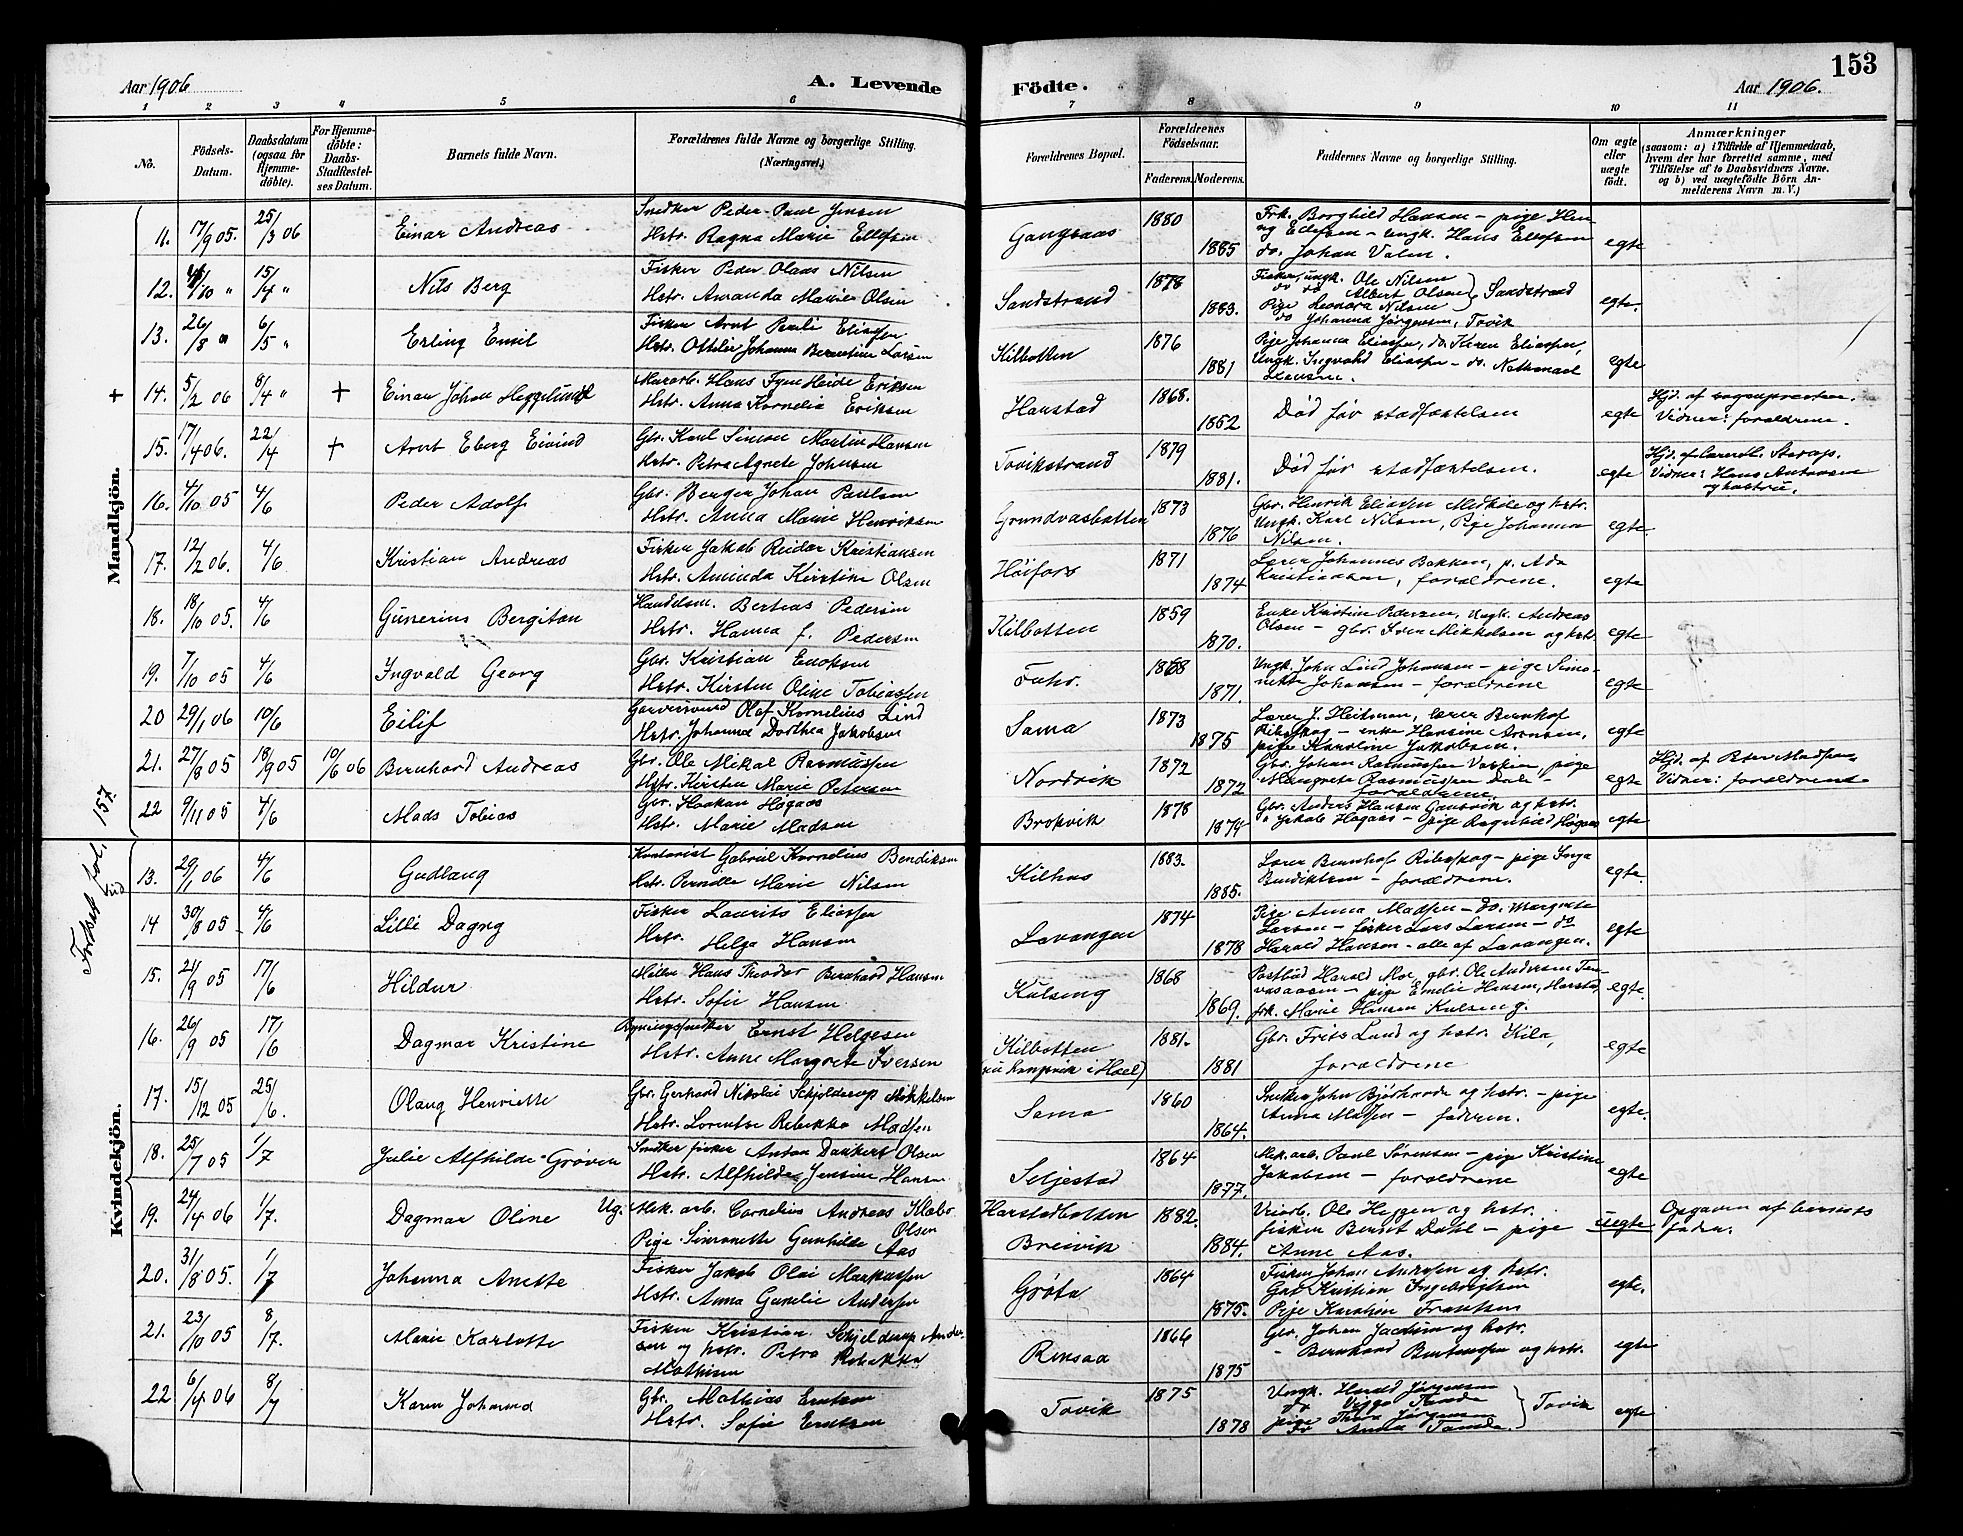 153
Aar 1906
A. Levende
Födte.
Aar 1906.
1 2 3 4 5 6 7 8 9 10 11
No.
Födsels-
Datum.
Daabsdatum
(ogsaa för
Hjemme-
döbte).
For Hjemme-
döbte:
Daabs-
Stadfestel-
ses Datum.
Barnets fulde Navn.
Forældrenes fulde Navne og borgerlige Stilling.
(Næringsvei.)
Forældrenes Bopæl.
Forældrenes
Födselsaar.
Faderens. Moderens.
Faddernes Navne og borgerlige Stilling.
Om ægte
eller
uægte
födt.
Anmærkninger
(saasom: a) i Tilfælde af Hjemmedaab,
hvem der har forrettet samme, med
Tilföielse af to Daabsvidners Navne.
og b) ved uægtefödte Börn An-
melderens Navn m. V.)
Mandkjön.
11. 17/9 05. 25/3 06 Einar Andreas
Snedker Peder Paul Jensen
Hstr. Ragna Marie Ellefsen
Gangsaas 1880 1885
Frk. Borghild Hansen – pige
og Ellefsen – ungk. Hans Ellefsen
do. Johan Valen.
egte
12. /10 " 15/4 " Nils Berg
Fisker Peder Olaus Nilsen
Hstr. Amanda Marie Olsen
Sandstrand 1878 1883.
Fisker, ungk. Ole Nilsen
do do Albert Olsen } Sandstrand
Pige Leonora Nilsen
do Johanna Jørgensen, Tovik
egte.
13. 26/8 " 6/5 " Erling Emil
Fisker Arnt Pauli Eliassen
Hstr. Ottelie Johanna Berntine Larsen
Kilbotten 1876 1881
Pige Johanna Eliassen, do. Karen Eliassen,
Ungk. Ingvald Eliassen – do. Nathanael
Hansen.
egte
+ 14. 5/2 06 8/4 " + Einar Johan Heggelund
Murarb. Hans Fyne Heide Eriksen
Hstr. Anna Kornelia Eriksen
Harstad 1868. 1852
Død før stadfæstelsen
egte
Hjd. af sognepresten.
Vidner: forældrene.
15. 17/4 06. 22/4 + Arnt Eberg Eivind
Gbr. Karl Simon Martin Hansen
Hstr. Petra Agnete Johnsen
Tovikstrand 1879 1881.
Død før stadfæstelsen.
egte
Vidner: Hans Antonsen
og hustru.
16. 4/10 05 4/6 Peder Adolf
Gbr. Berger Johan Paulsen
Hstr. Anna Marie Henriksen
Grundvasbotten 1873 1876
Gbr. Henrik Eliassen Medkile og hstr.
Ungk. Karl Nilsen, Pige Johanna
Nilsen.
egte.
17. 12/2 06. 4/6 Kristian Andreas
Fisker Jakob Reidar Kristiansen
Hstr. Aminda Kirstine Olsen
Høifors 1871 1874
Lærer Johannes Bakken, p. Ada
Kristiansen, forældrene.
egte
18. 18/10 05. 4/6 Gunerius Bergiton
Handelsm. Berteus Pedersen
Hstr. Hanna f. Pedersen
Kilbotten 1859 1870.
Enke Kristine Pedersen, Ungk. Andreas
Olsen – gbr. Iver Mikkelsen og hstr.
egte
19. 7/10 05 4/6 Ingvald Georg
Gbr. Kristian Enoksen
Hstr. Kirsten Oline Tobiassen
1868 1871.
Ungk. John Lind Johansen – pige Simo-
nette Johansen – forældrene
egte
20 29/1 06 10/6 Eilif
Garversvend Olaf Kornelius Lind
Hstr. Johanna Dorthea Jakobsen
Sama 1873 1875
Lærer J. Heitman, lærer Bernhof
Ribeskog – enke Hansine Aronsen,
pige Karoline Jakobsen.
egte
21. 27/8 05 18/9 05 10/6 06 Bernhard Andreas
Gbr. Ole Mikal Rasmussen
Hstr. Kirsten Marie Petersen
Nordvik 1872 1872
Gbr. Johan Rasmussen, pige
Margrete Rasmussen Dale –
forældrene
egte
Hjd. af Peter Madsen
Vidner: forældrene
22 9/11 05 4/6 Mads Tobias
Gbr. Haakan Høgaas
Hstr. Marie Madsen
Brokvik 1878 1874
Gbr. Anders Hansen Gausvik og hstr.
" Jakob Høgaas – pige Ragnhild Høgaas
egte
Fortsat fol. 157.
Kvindekjön.
13. 29/1 06 4/6 Gudlaug
Kontorist Gabriel Kornelius Bendiksen
Hstr. Pernille Marie Nilsen
Kilhus 1883. 1885.
Lærer Bernhof Ribeskog – pige Inga
Bendiktsen – forældrene.
egte.
14 30/8 05 4/6 Lilli Dagny
Fisker Laurits Eliassen
Hstr. Helga Hansen
Lavangen 1874 1878
Pige Anna Madsen – do. Margrete
Larsen – fisker Lars Larsen – do
Harald Hansen – alle af Lavangen.
egte
15. 21/9 05 17/6 Hildur
Møller Hans Theodor Bernhard Hansen
Hstr. Sofie Hansen
Kulseng 1868 1869.
Postbud Harald Moe, gbr. Ole Andersen
– pige Emelie Hansen, Harstad,
frk. Marie Hansen Kulseng.
egte
16. 26/9 05 17/6 Dagmar Kristine
Bygningssnedker Ernst Helgesen
Hstr. Anne Margrete Iversen
Kilbotten
1881. 1881
Gbr. Frits Lund og hstr. Kila,
forældrene
egte
17. 15/12 05 25/6. Olaug Henriette
Gbr. Gerhard Nikolai Schjelderup Mikkelsen
Hstr. Lorentse Rebekka Madsen
Sama 1860 1864.
Snedker John Bjørkande og hstr. – pige
Anna Madsen – faderen.
egte.
18. 25/7 05 1/7 Julie Alfhilde Grøven
Snedker fisker Anton Dankert Olsen
Hstr. Alfhilde Jensine Hansen
Seljestad 1864 1877.
Mek. arb. Paul Sørensen – pige Kristine
Jakobsen – forældrene
egte
19. 24/4 06 1/7. Dagmar Oline
Ug. Mek. arb. Cornelius Andreas Klabo
Olsen
Pige Simonette Gunhilde Aas
Harstadbotten
Breivik
1882. 1884.
Veiarb. Ole Heggen og hstr.
fisker Bernt Dahl – pige
Anne Aas.
uegte
Opgaven af barnets
fader.
20. 31/8 05. 1/7 Johanna Anette
Fisker Jakob Olai Markussen
Hstr. Anna Gunelie Andersen
Grøta 1864 1875.
Fisker Johan Andersen og hstr.
Gbr Kristian Ingebrigtsen
Pige Karoline Frantsen
egte.
21. 23/10 05 8/7. Marie Karlotte
Fisker Kristian Schjelderup Ander-
sen og hstr. Petra Rebekka
Mathisen
Rensaa 1866 1875
Gbr. Johan Jacobsen og hstr.
– Bernhard Berntensen og hstr.
egte
22 6/4 06 8/7 Karen Johanna
Gbr. Mathias Erntsen
Hstr. Sofie Erntsen
Tovik 1875 1878
Ungk. Harald Jørgensen
do Viggo
pige Thora Jørgensen } Tovik
do Anna
egte